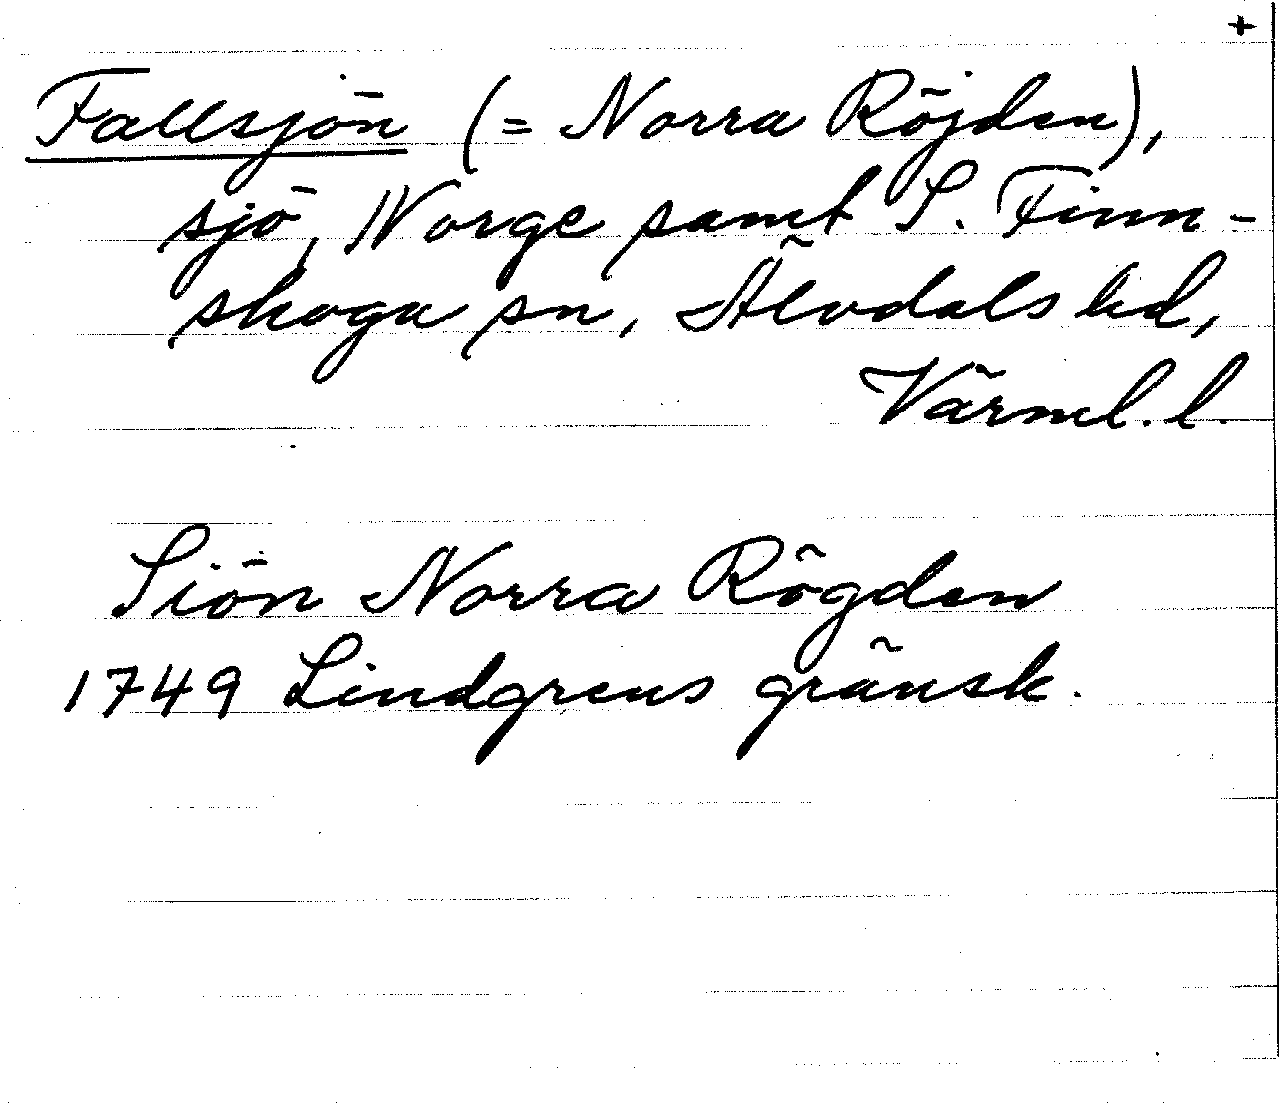 +
Fallsjön (= Norra Röjden),
sjö, Norge samt S. Finn-
skoga sn, Älvdals hd,
Värml. l.
Siön Norra Rögden
1749 Lindgrens gränsk.